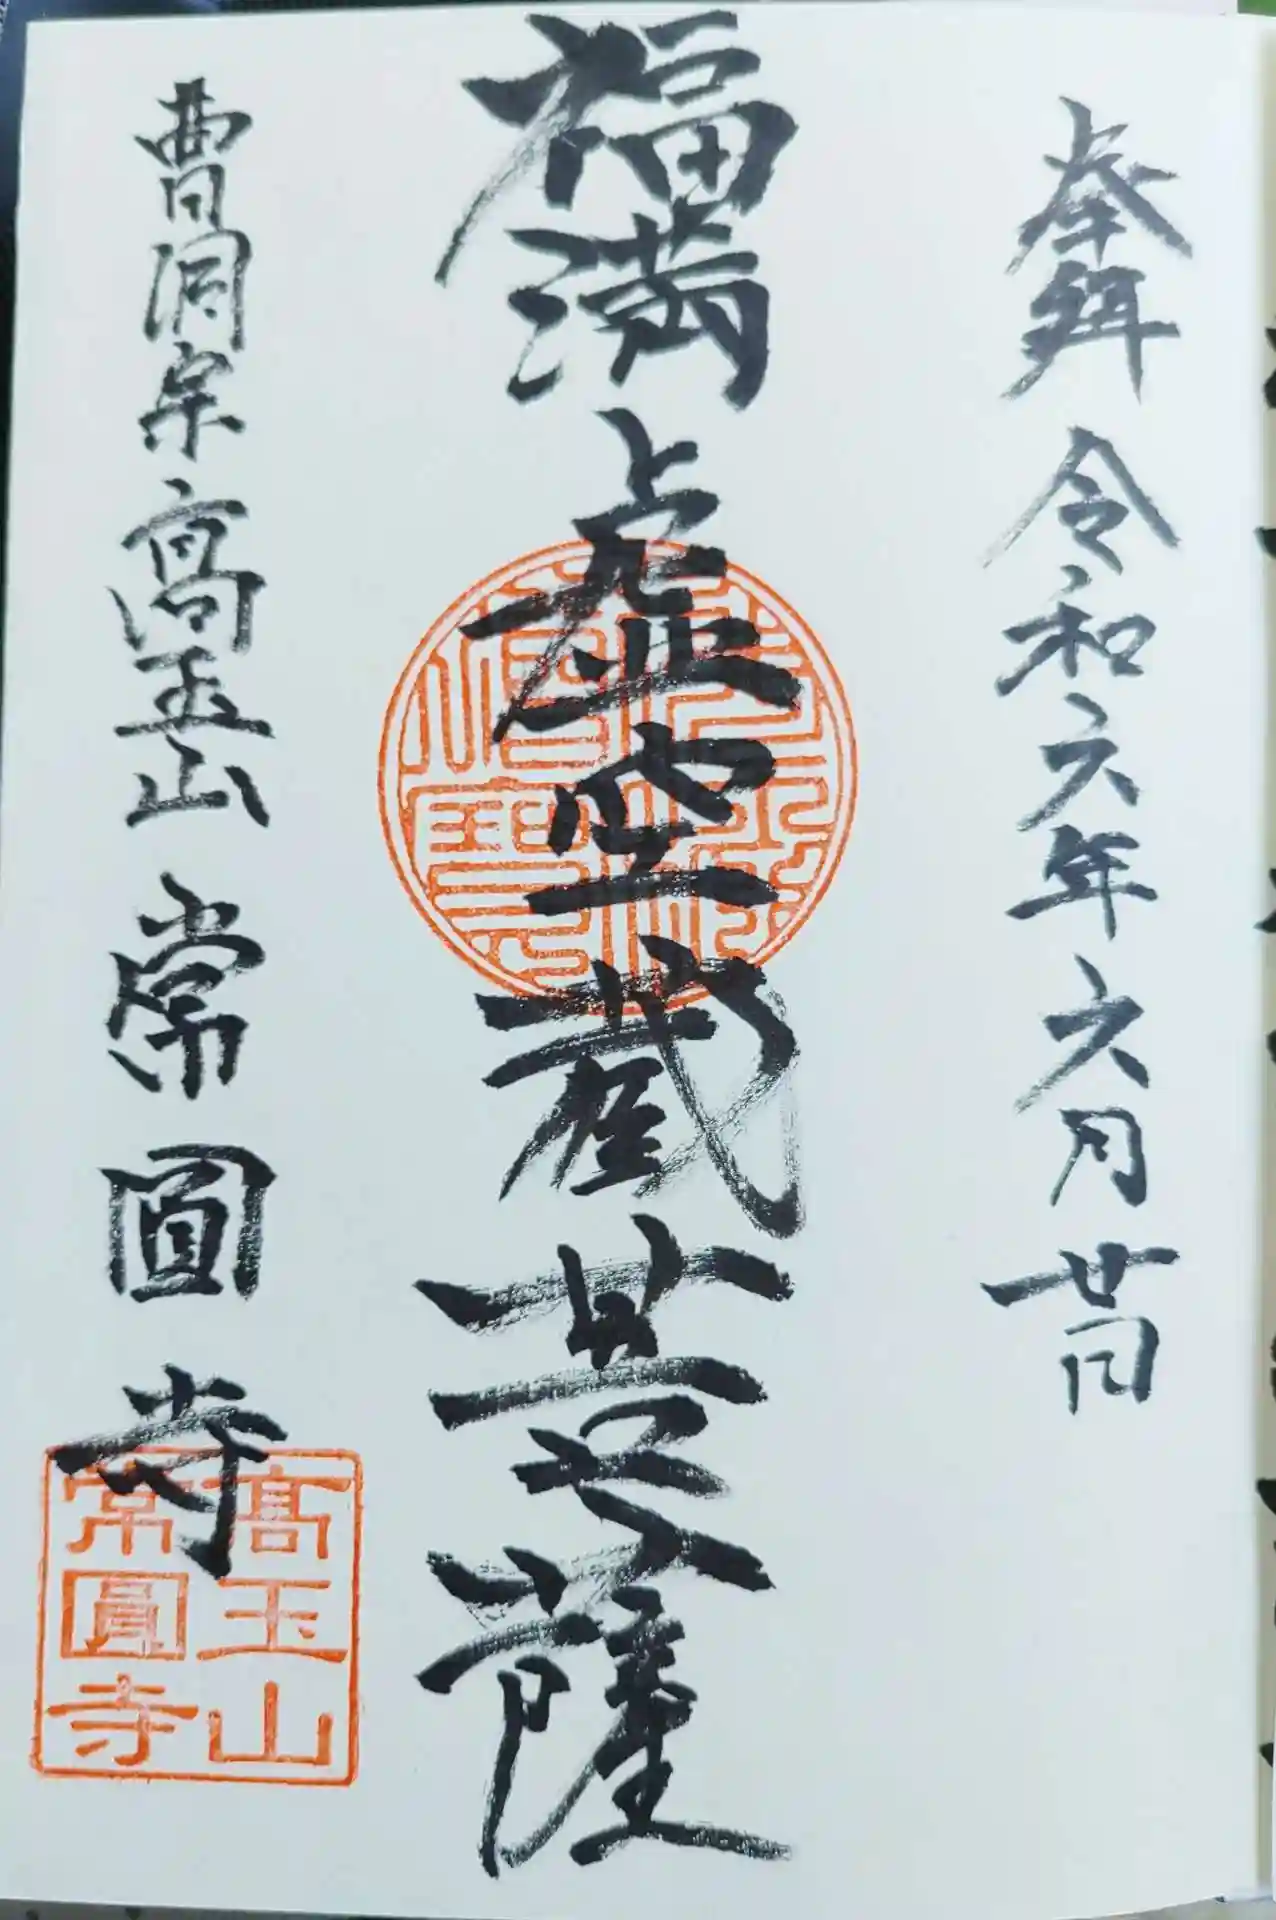 奉拝 令和六年六月廿日
福満虚空蔵菩薩
曹洞宗 高玉山 常圓寺
髙玉山
常圓寺